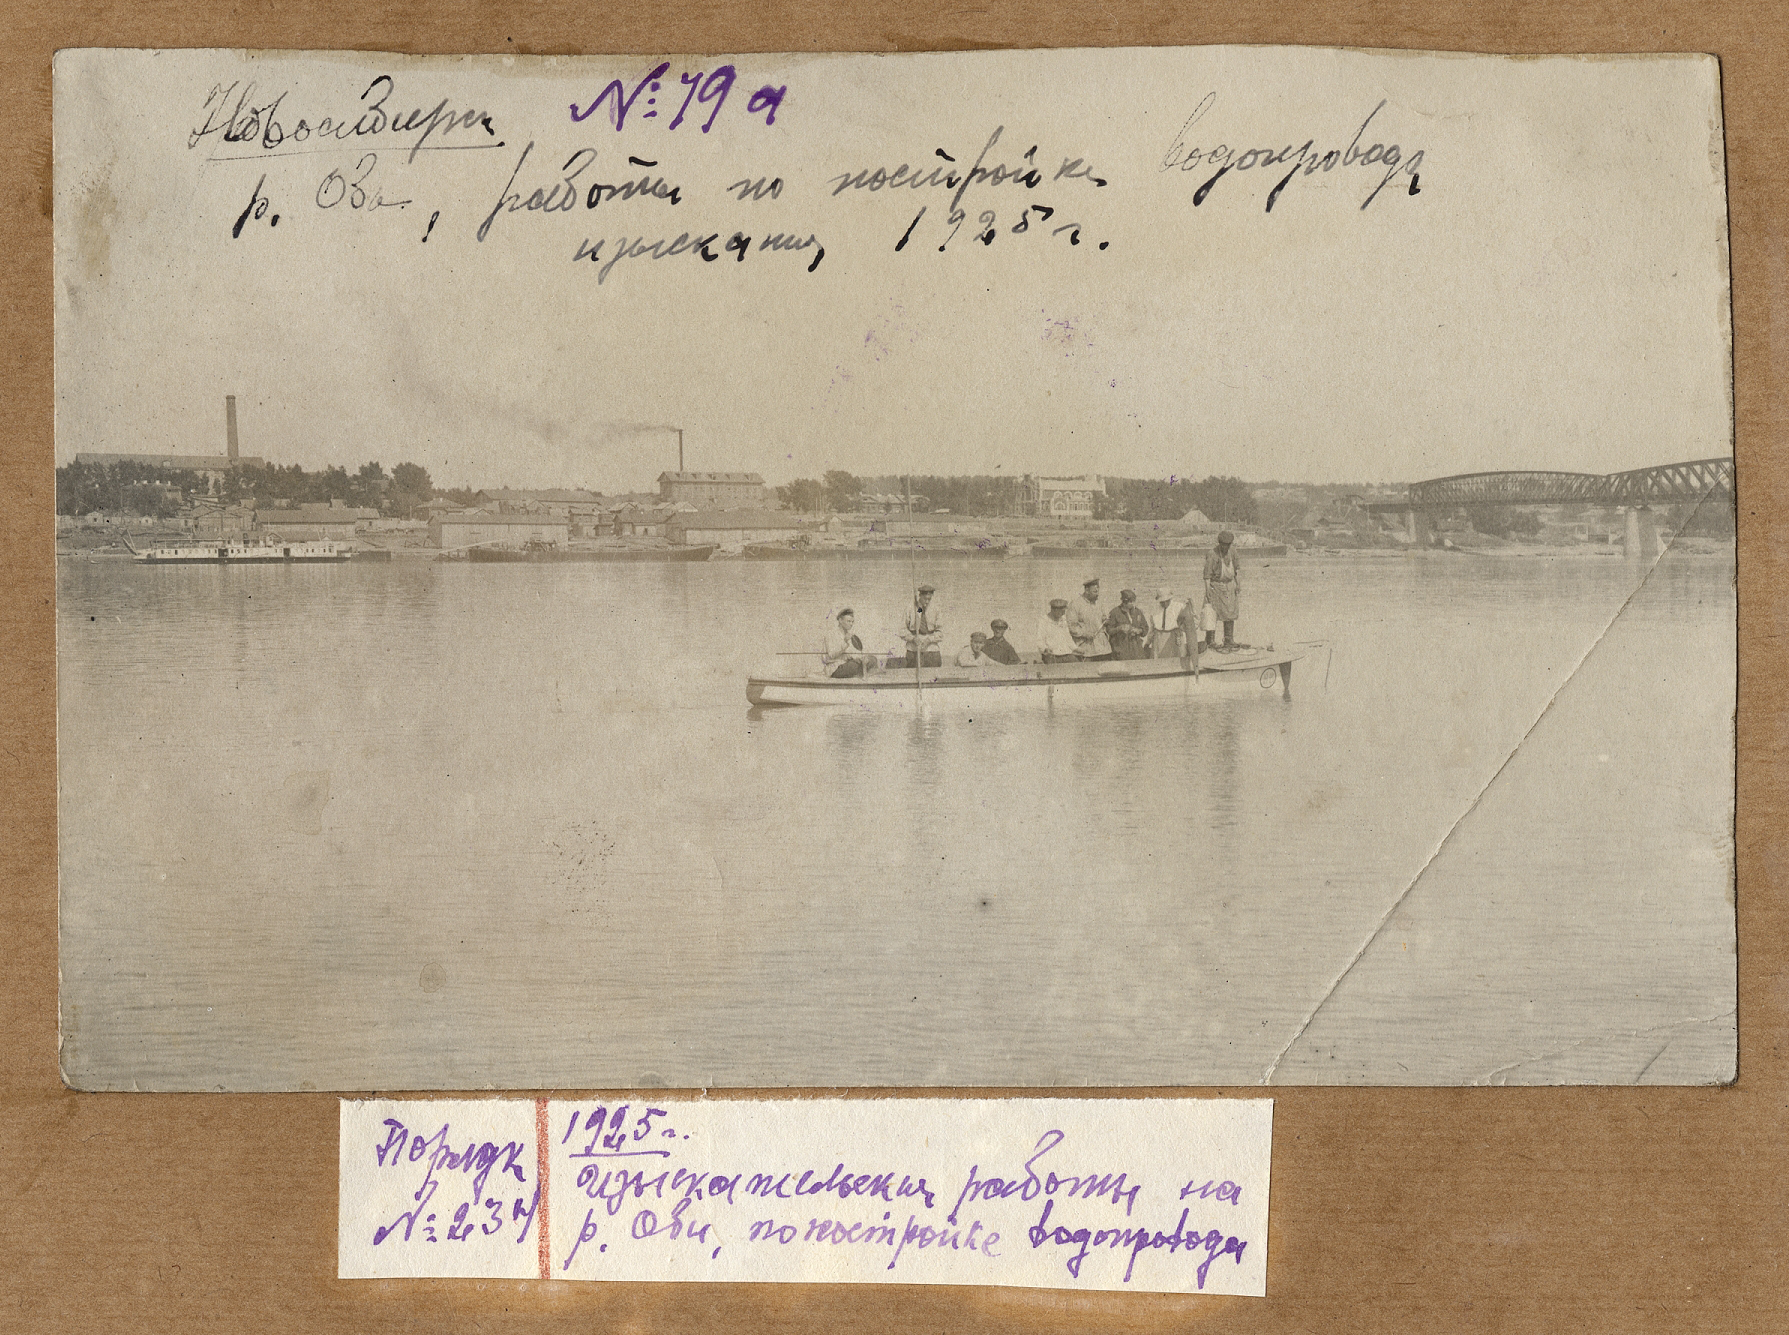 Новосибирск № 79 а
р. Обь, работы по постройке водопровода
изыскания, 1925 г.
Порядк 1925 г.
№ 23 изыскательския работы на
р. Оби, по постройке водопровода